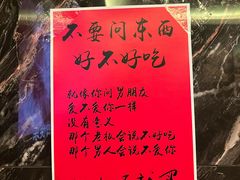 不要问东西
好不好吃
就像你问男朋友
爱不爱你一样
没有意义
那个老板会说不好吃
那个男人会说不爱你